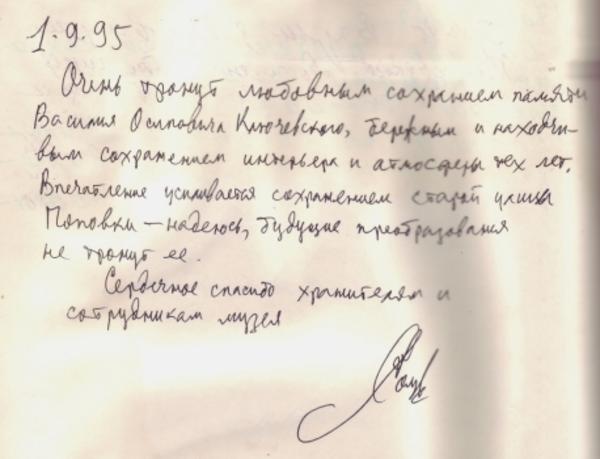 1.9.95
Очень тронут любовным сохранением памяти
Василия Осиповича Ключевского, бережным и находчи-
вым сохранением интерьера и атмосферы тех лет.
Впечатление усиливается сохранением старой улицы
Поповки — надеюсь, будущие преобразования
не тронут ее.
Сердечное спасибо хранителям и
сотрудникам музея